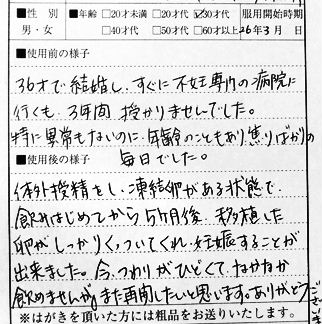 ■性別 ■年齢 □20才未満 □20才代 ☑30才代 服用開始時期
男・女 □40才代 □50才代 □60才以上 26年3月 日
■使用前の様子
36才で結婚し、すぐに不妊専門の病院に
行くも、3年間授かりませんでした。
特に異常もないのに、年齢のこともあり焦りばかりの
毎日でした。
■使用後の様子
体外授精をし、凍結卵がある状態で、
飲みはじめてから5ヶ月後、移植した
卵がしっかりくっついてくれ、妊娠することが
出来ました。今、つわりがひどくて、なかなか
飲めませんが、また再開したいと思います。ありがとうござい
※はがきを頂いた方には粗品をお送りいたします。